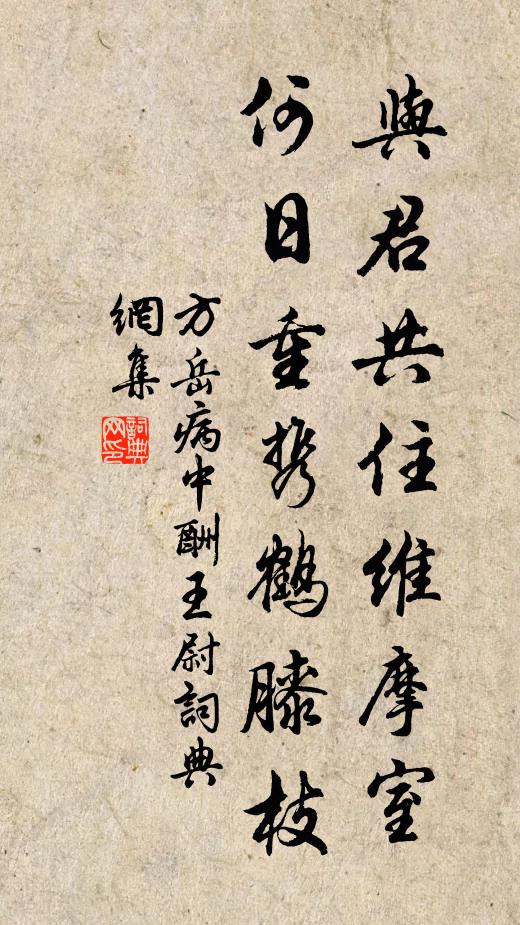 與君共住維摩室
何日重携鶴膝枝
方岳病中酬王尉詞典
網集
詞典
网印